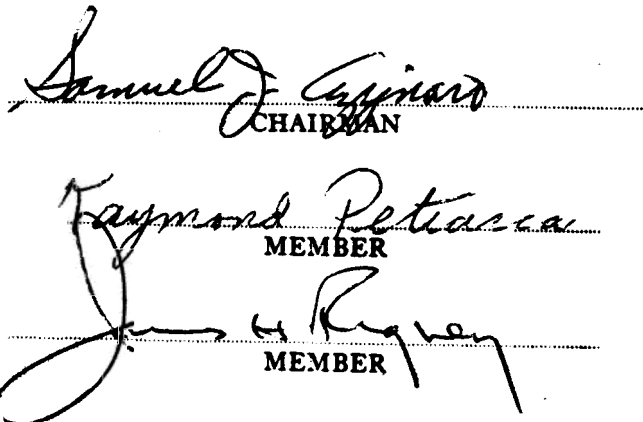 Samuel J. Azzinaro
CHAIRMAN
Raymond Petrasca
MEMBER
James H Rigney
MEMBER